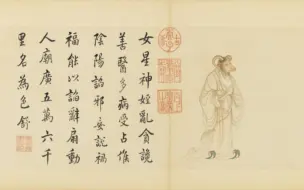 女星神婬亂貪說
善醫多病受占惟
陰陽諂邪妄說禍
福能以諂辭扇動
人廟廣五萬六千
里名為色舒